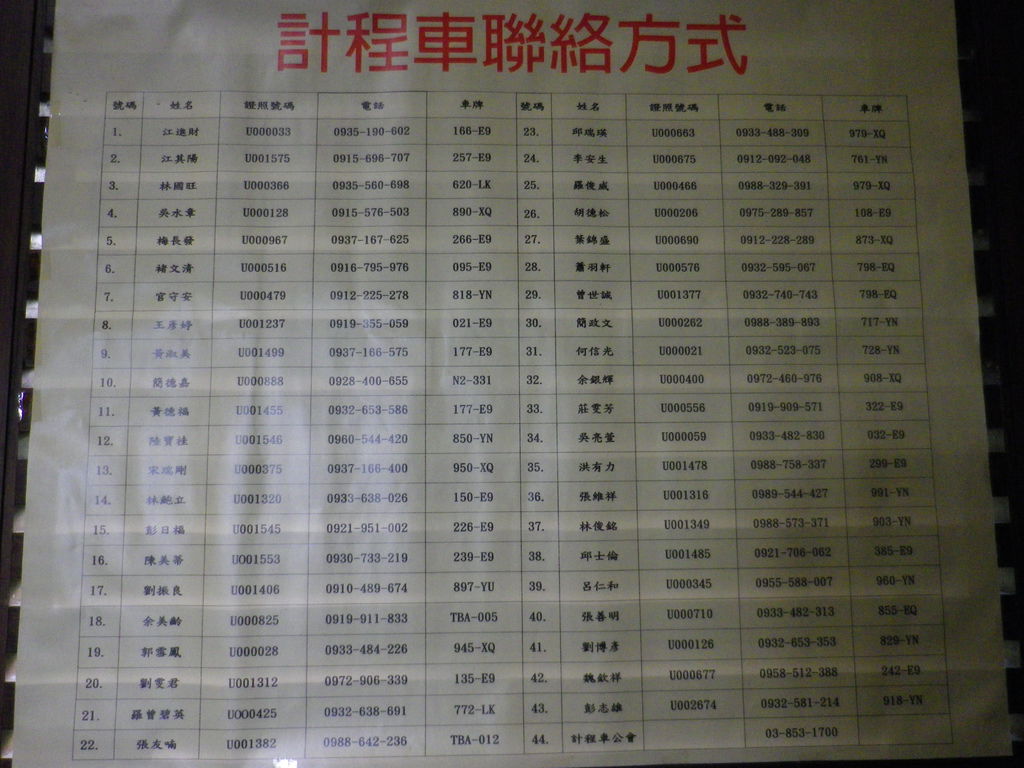 計程車聯絡方式
號碼 姓名 證照號碼 電話 車牌 號碼 姓名 證照號碼 電話 車牌
1. 江進財 U000033 0935-190-602 166-E9 23. 邱瑞瑛 U000663 0933-488-309 979-XQ
2. 江其陽 U001575 0915-696-707 257-E9 24. 李安生 U000675 0912-092-048 761-YN
3. 林國旺 U000366 0935-560-698 620-LK 25. 羅俊威 U000466 0988-329-391 979-XQ
4. 吳水章 U000128 0915-576-503 890-XQ 26. 胡德松 U000206 0975-289-857 108-E9
5. 梅長發 U000967 0937-167-625 266-E9 27. 葉錦盛 U000690 0912-228-289 873-XQ
6. 褚文清 U000516 0916-795-976 095-E9 28. 蕭羽軒 U000576 0932-595-067 798-EQ
7. 官守安 U000479 0912-225-278 818-YN 29. 曾世誠 U001377 0932-740-743 798-EQ
8. 王彥婷 U001237 0919-355-059 021-E9 30. 簡政文 U000262 0988-389-893 717-YN
9. 黃淑美 U001499 0937-166-575 177-E9 31. 何信光 U000021 0932-523-075 728-YN
10. 簡德嘉 U000888 0928-400-655 N2-331 32. 余銀輝 U000400 0972-460-976 908-XQ
11. 黃德福 U001455 0932-653-586 177-E9 33. 莊雯芳 U000556 0919-909-571 322-E9
12. 陸寶桂 U001546 0960-544-420 850-YN 34. 吳亮萱 U000059 0933-482-830 032-E9
13. 宋瑞剛 U000375 0937-166-400 950-XQ 35. 洪有力 U001478 0988-758-337 299-E9
14. 林鮑立 U001320 0933-638-026 150-E9 36. 張維祥 U001316 0989-544-427 991-YN
15. 彭日福 U001545 0921-951-002 226-E9 37. 林俊銘 U001349 0988-573-371 903-YN
16. 陳美蒂 UO01553 0930-733-219 239-E9 38. 邱士倫 U001485 0921-706-062 385-E9
17. 劉振良 U001406 0910-489-674 897-YU 39. 呂仁和 U000345 0955-588-007 960-YN
18. 余美齡 U000825 0919-911-833 TBA-005 40. 張善明 U000710 0933-482-313 855-EQ
19. 郭雪鳳 U000028 0933-484-226 945-XQ 41. 劉博彥 U000126 0932-653-353 829-YN
20. 劉雯君 U001312 0972-906-339 135-E9 42. 魏欽祥 U000677 0958-512-388 242-E9
21. 羅曾碧英 UOO0425 0932-638-691 772-LK 43. 彭志雄 U002674 0932-581-214 918-YN
22. 張友喃 U001382 0988-642-236 TBA-012 44. 計程車公會 03-853-1700